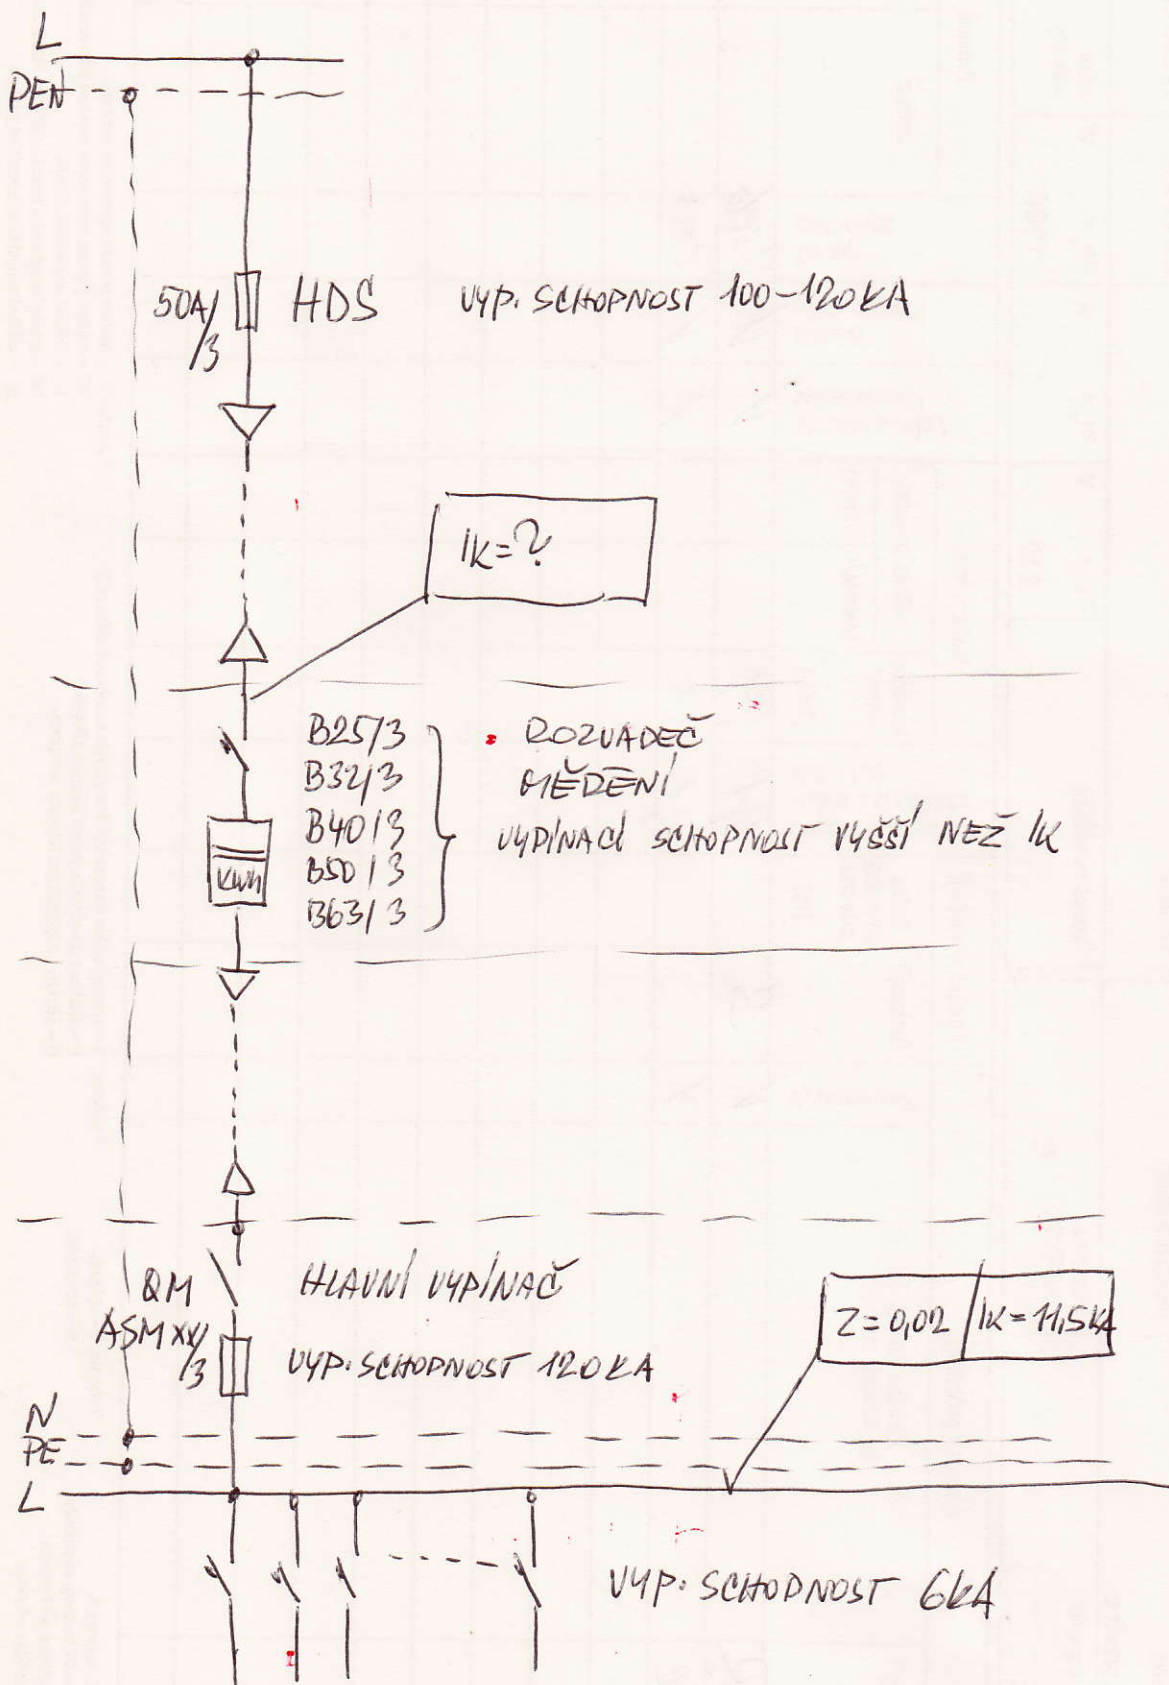 L
PEN
50A/3 HDS VYP. SCHOPNOST 100-120KA
IK=?
B25/3
B32/3
B40/3
B50/3
B63/3
ROZVADĚČ
MĚŘENÍ
VYPÍNACÍ SCHOPNOST VYŠŠÍ NEŽ IK
KWh
QM HLAVNÍ VYPÍNAČ
ASM XX/3 VYP. SCHOPNOST 120KA
Z=0,02 IK=11,5KA
N
PE
L
VYP. SCHOPNOST 6KA